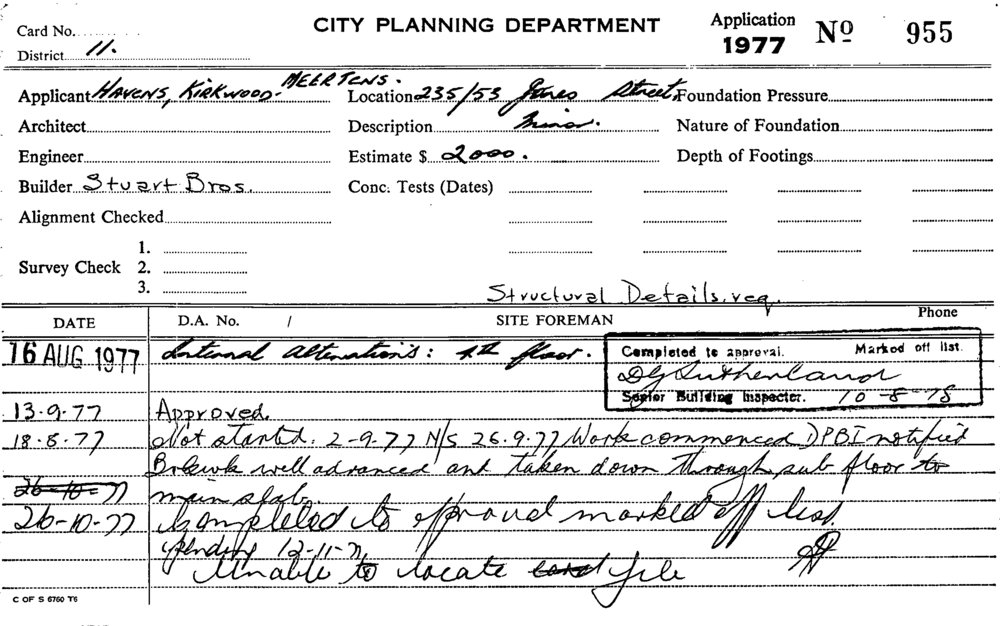 Card No.
CITY PLANNING DEPARTMENT
Application 1977
Nº 955
District 11.
Applicant HAVENS, KIRKWOOD- MEERTENS.
Location 235/53 Jones Street,
Foundation Pressure
Architect
Description Minor.
Nature of Foundation
Engineer
Estimate $ 2000.
Depth of Footings
Builder Stuart Bros.
Conc. Tests (Dates)
Alignment Checked
Survey Check
1.
2.
3.
Structural Details.req.
DATE
D.A. No. /
SITE FOREMAN
Phone
16 AUG 1977
Internal alterations: 1st floor.
Completed to approval. Marked off list.
DG Sutherland
Senior Building Inspector. 10-8-78
13-9-77 Approved.
18-8-77 Not started. 2-9-77 N/S 26.9.77 Work commenced DPBI notified
Brkwk well advanced and taken down through sub floor to
26-10-77 main slab.
26-10-77 Completed to approval marked off list
pending 12-11-7
Unable to locate card file
C OF S 6760 T6